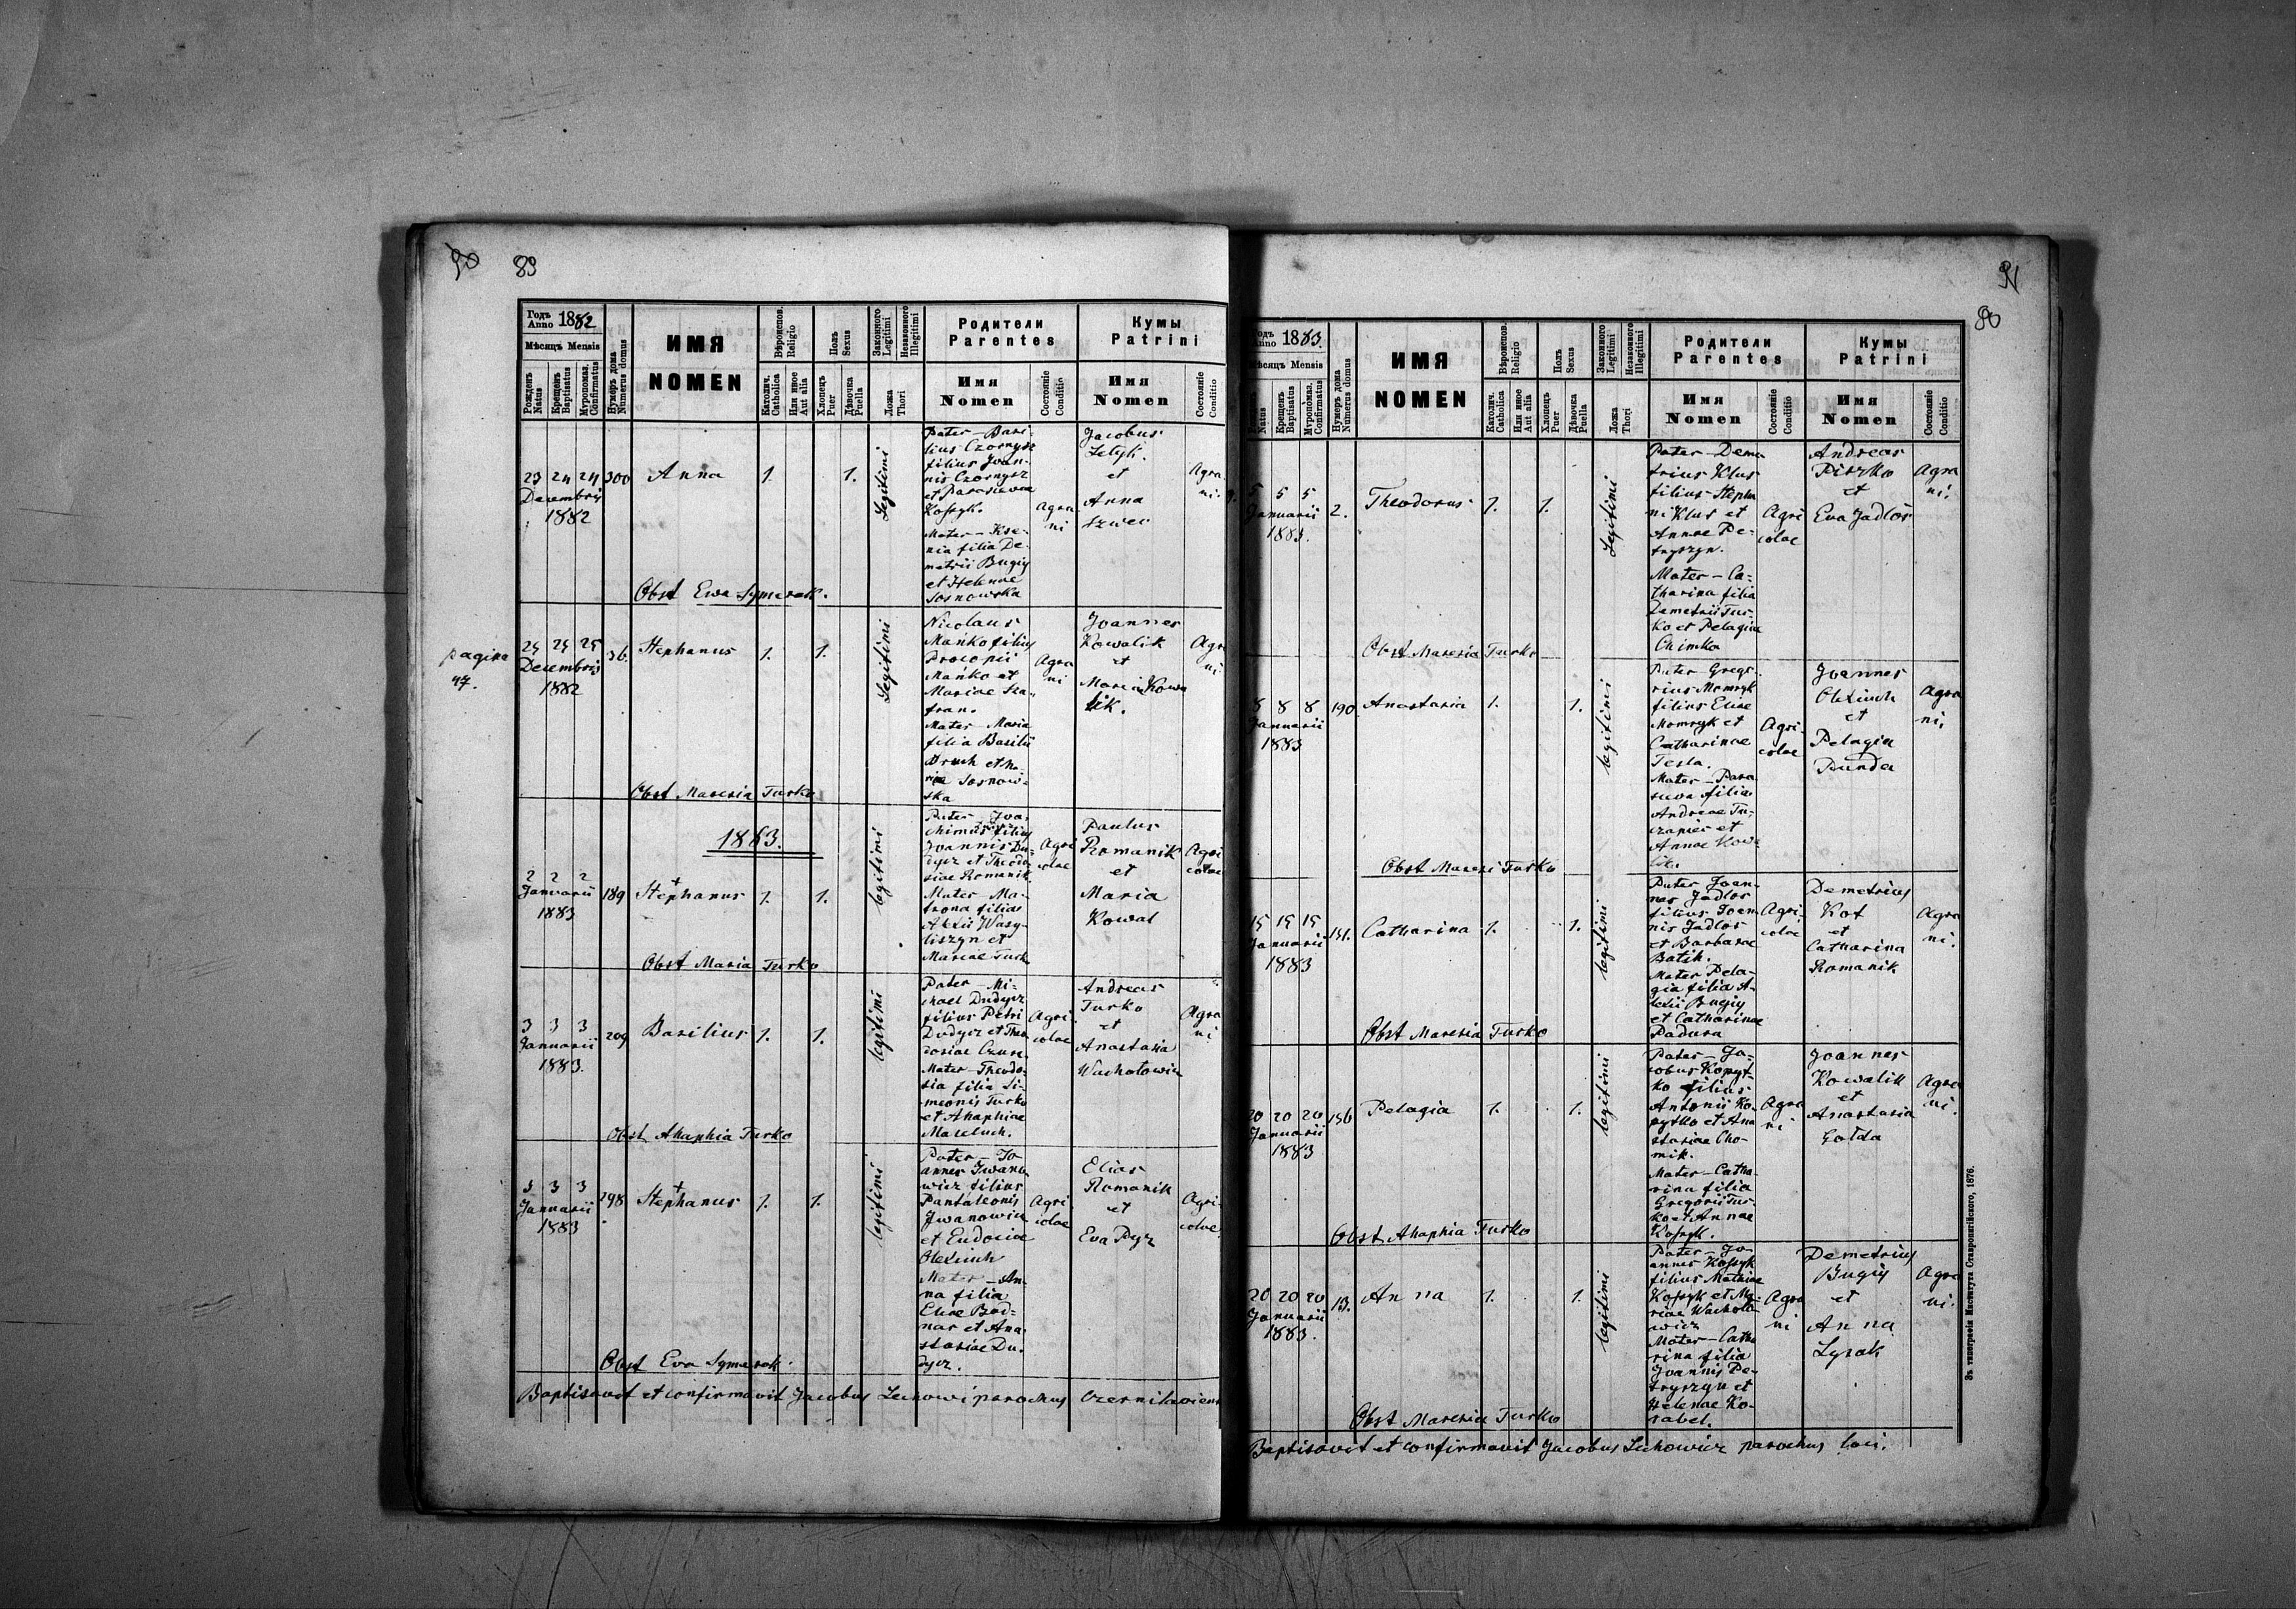 90 89
Годъ Anno 1882
Мѣсяцъ Mensis
Рожденъ Natus
Крещенъ Baptisatus
Муропомаз. Confirmatus
Нумеръ дома Numerus domus
ИМЯ
NOMEN
Вѣроиспов. Religio
Католич. Catholica
Или иное Aut alia
Полъ Sexus
Хлопецъ Puer
Дѣвочка Puella
Законного Legitimi
Незаконного Illegitimi
Ложа Thori
Родители
Parentes
Имя
Nomen
Состояніе Conditio
Кумы
Patrini
Имя
Nomen
Состояніе Conditio
23 24 24
Decembris
1882
300
Anna
1. 1.
Legitimi
Pater - Basi-
lius Czornysz
filius Joan-
nis Czornysz
et Parascevae
Kossyk.
Mater - Kse-
nia filia De-
metrii Bugiy
et Helenae
Sosnowska
Agra
ni
Jacobus
et
Anna
Szwec
Agra
ni.
Obst Ewa Symerok.
pagina
47.
25 25 25
Decembris
1882
36.
Stephanus
1. 1.
Legitimi
Nicolaus
Mańko filius
Procopii
Mańko et
Mariae Sza-
fran.
Mater Maria
filia Basilii
Druch et Ma-
riae Sosnow-
ska
Agra
ni
Joannes
Kowalik
et
Maria Kowa
lik.
Agra
ni.
Obst Maresia Turko
1883.
2 2 2
Januarii
1883
189
Stephanus
1. 1.
legitimi
Pater Joa-
chimus filius
Joannis Du-
dycz et Theodo
siae Romanik
Mater Ma-
trona filia
Alexii Wasy-
liszyn et
Mariae Turko
Agri
colae
Paulus
Romanik
et
Maria
Kowal
Agri
colae
Obst Maria Turko
3 3 3
Januarii
1883.
209
Basilius
1. 1.
legitimi
Pater - Mi-
chael Dudycz
filius Petri
Dudycz et Theo
dosiae
Mater - Theodo-
sia filia Si-
meonis Turko
et Ahaphiae
Maseluch.
Agri
colae
Andreas
Turko
et
Anastasia
Wacholowicz
Agra
ni
Obst. Ahaphia Turko
3 3 3
Januarii
1883
298
Stephanus
1. 1.
legitimi
Pater - Jo-
annes Iwano
wicz filius
Pantaleonis
Iwanowicz
et Eudociae
Olexiuch
Mater - An-
na filia
Eliae Bod-
nar et Ana-
stasiae Du-
dycz.
Agri
colae
Elias
Romanik
et
Eva Pyz
Agri-
colae
Obst Eva Symerok.
Baptisavit et confirmavit Jacobus Lechowi parochus Czernilawiens
91
90
Годъ Anno 1883.
Мѣсяцъ Mensis
Natus
Крещенъ Baptisatus
Муропомаз. Confirmatus
Нумеръ дома Numerus domus
ИМЯ
NOMEN
Вѣроиспов. Religio
Католич. Catholica
Или иное Aut alia
Полъ Sexus
Хлопецъ Puer
Дѣвочка Puella
Законного Legitimi
Незаконного Illegitimi
Ложа Thori
Родители
Parentes
Имя
Nomen
Состояніе Conditio
Кумы
Patrini
Имя
Nomen
Состояніе Conditio
5 5 5
Januarii
1883.
2.
Theodorus
1. 1.
Legitimi
Pater - Deme
trius Klus
filius Stepha
ni Klus et
Annae Pe-
tryszyn.
Mater - Ca-
tharina filia
Demetrii Tur-
ko et Pelagiae
Chimka
Agri
colae
Andreas
Piszko
et
Eva Jadlos
Agra
ni.
Obst Maresia Turko
8 8 8
Januarii
1883
190
Anastasia
1. 1.
legitimi
Pater Grego-
rius Momryk
filius Eliae
Momryk et
Catharinae
Tesla.
Mater - Para
sceva filia
Andreae Tu-
czapiec et
Annae Kowa
lik.
Agri-
colae
Joannes
Olexiuch
et
Pelagia
Punda
Agra
ni,
Obst Maresi Turko
15 15 15
Januarii
1883
151.
Catharina
1. 1.
legitimi
Pater Joan-
nes Jadlos
filius Joan
nis Jadlos
et Barbarae
Batik.
Mater Pela-
gia filia A-
lexii Bugiy
et Catharinae
Padura
Agri-
colae
Demetrius
Kot
et
Catharina
Romanik
Agra
ni.
Obst Maresia Turko
20 20 20
Januarii
1883
156
Pelagia
1. 1.
legitimi
Pater - Ja-
cobus Kopyt-
ko filius
Antonii Ko-
pytko et Ana
stasiae Cho-
mik.
Mater - Catha
rina filia
Gregorii Tur-
ko et Annae
Kossyk.
Agra
ni
Joannes
Kowalik
et
Anastasia
Golda
Agra
ni.
Obst Ahaphia Turko
20 20 20
Januarii
1883.
13.
Anna
1. 1.
legitimi
Pater - Jo-
annes Kossyk
filius Mathiae
Kossyk et Ma-
riae Wacholo
wicz
Mater - Catha
rina filia
Joannis Pe-
tryszyn et
Helenae Ko-
rabel.
Agra
ni
Demetrius
Bugiy
et
Anna
Lysak
Agra
ni.
Obst Maresia Turko
Baptisavit et confirmavit Jacobus Lechowicz parochus loci.
Зъ типографіи Института Ставропигійского, 1876.